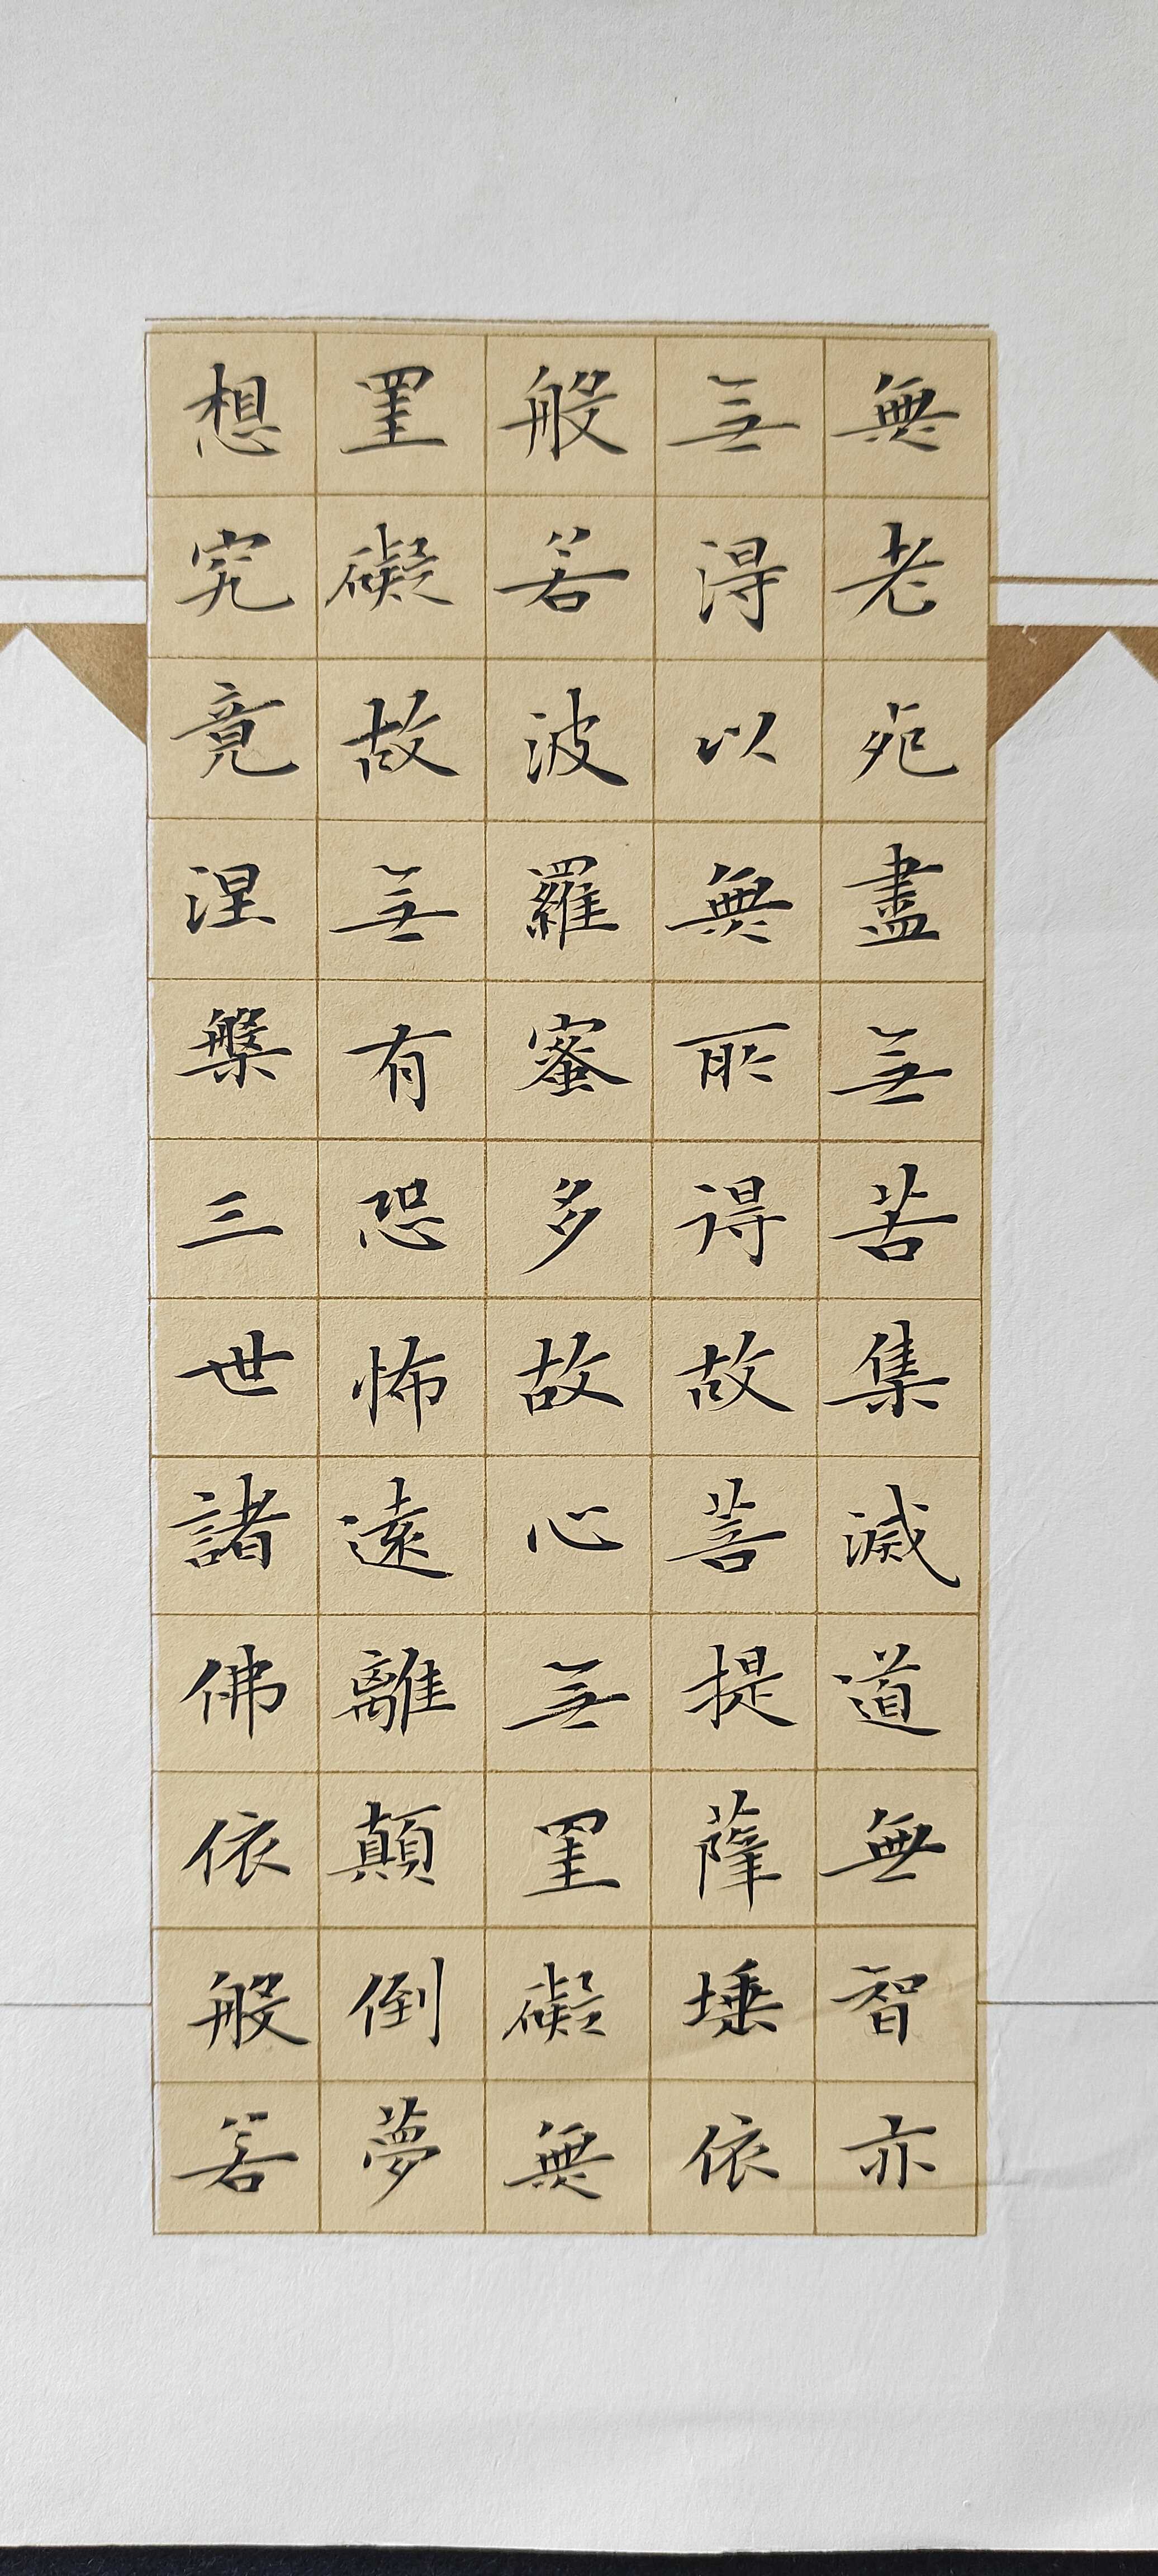 無老死盡無苦集滅道無智亦
无得以無所得故菩提薩埵依
般若波羅蜜多故心无罣礙無
罣礙故无有恐怖遠離顛倒夢
想究竟涅槃三世諸佛依般若